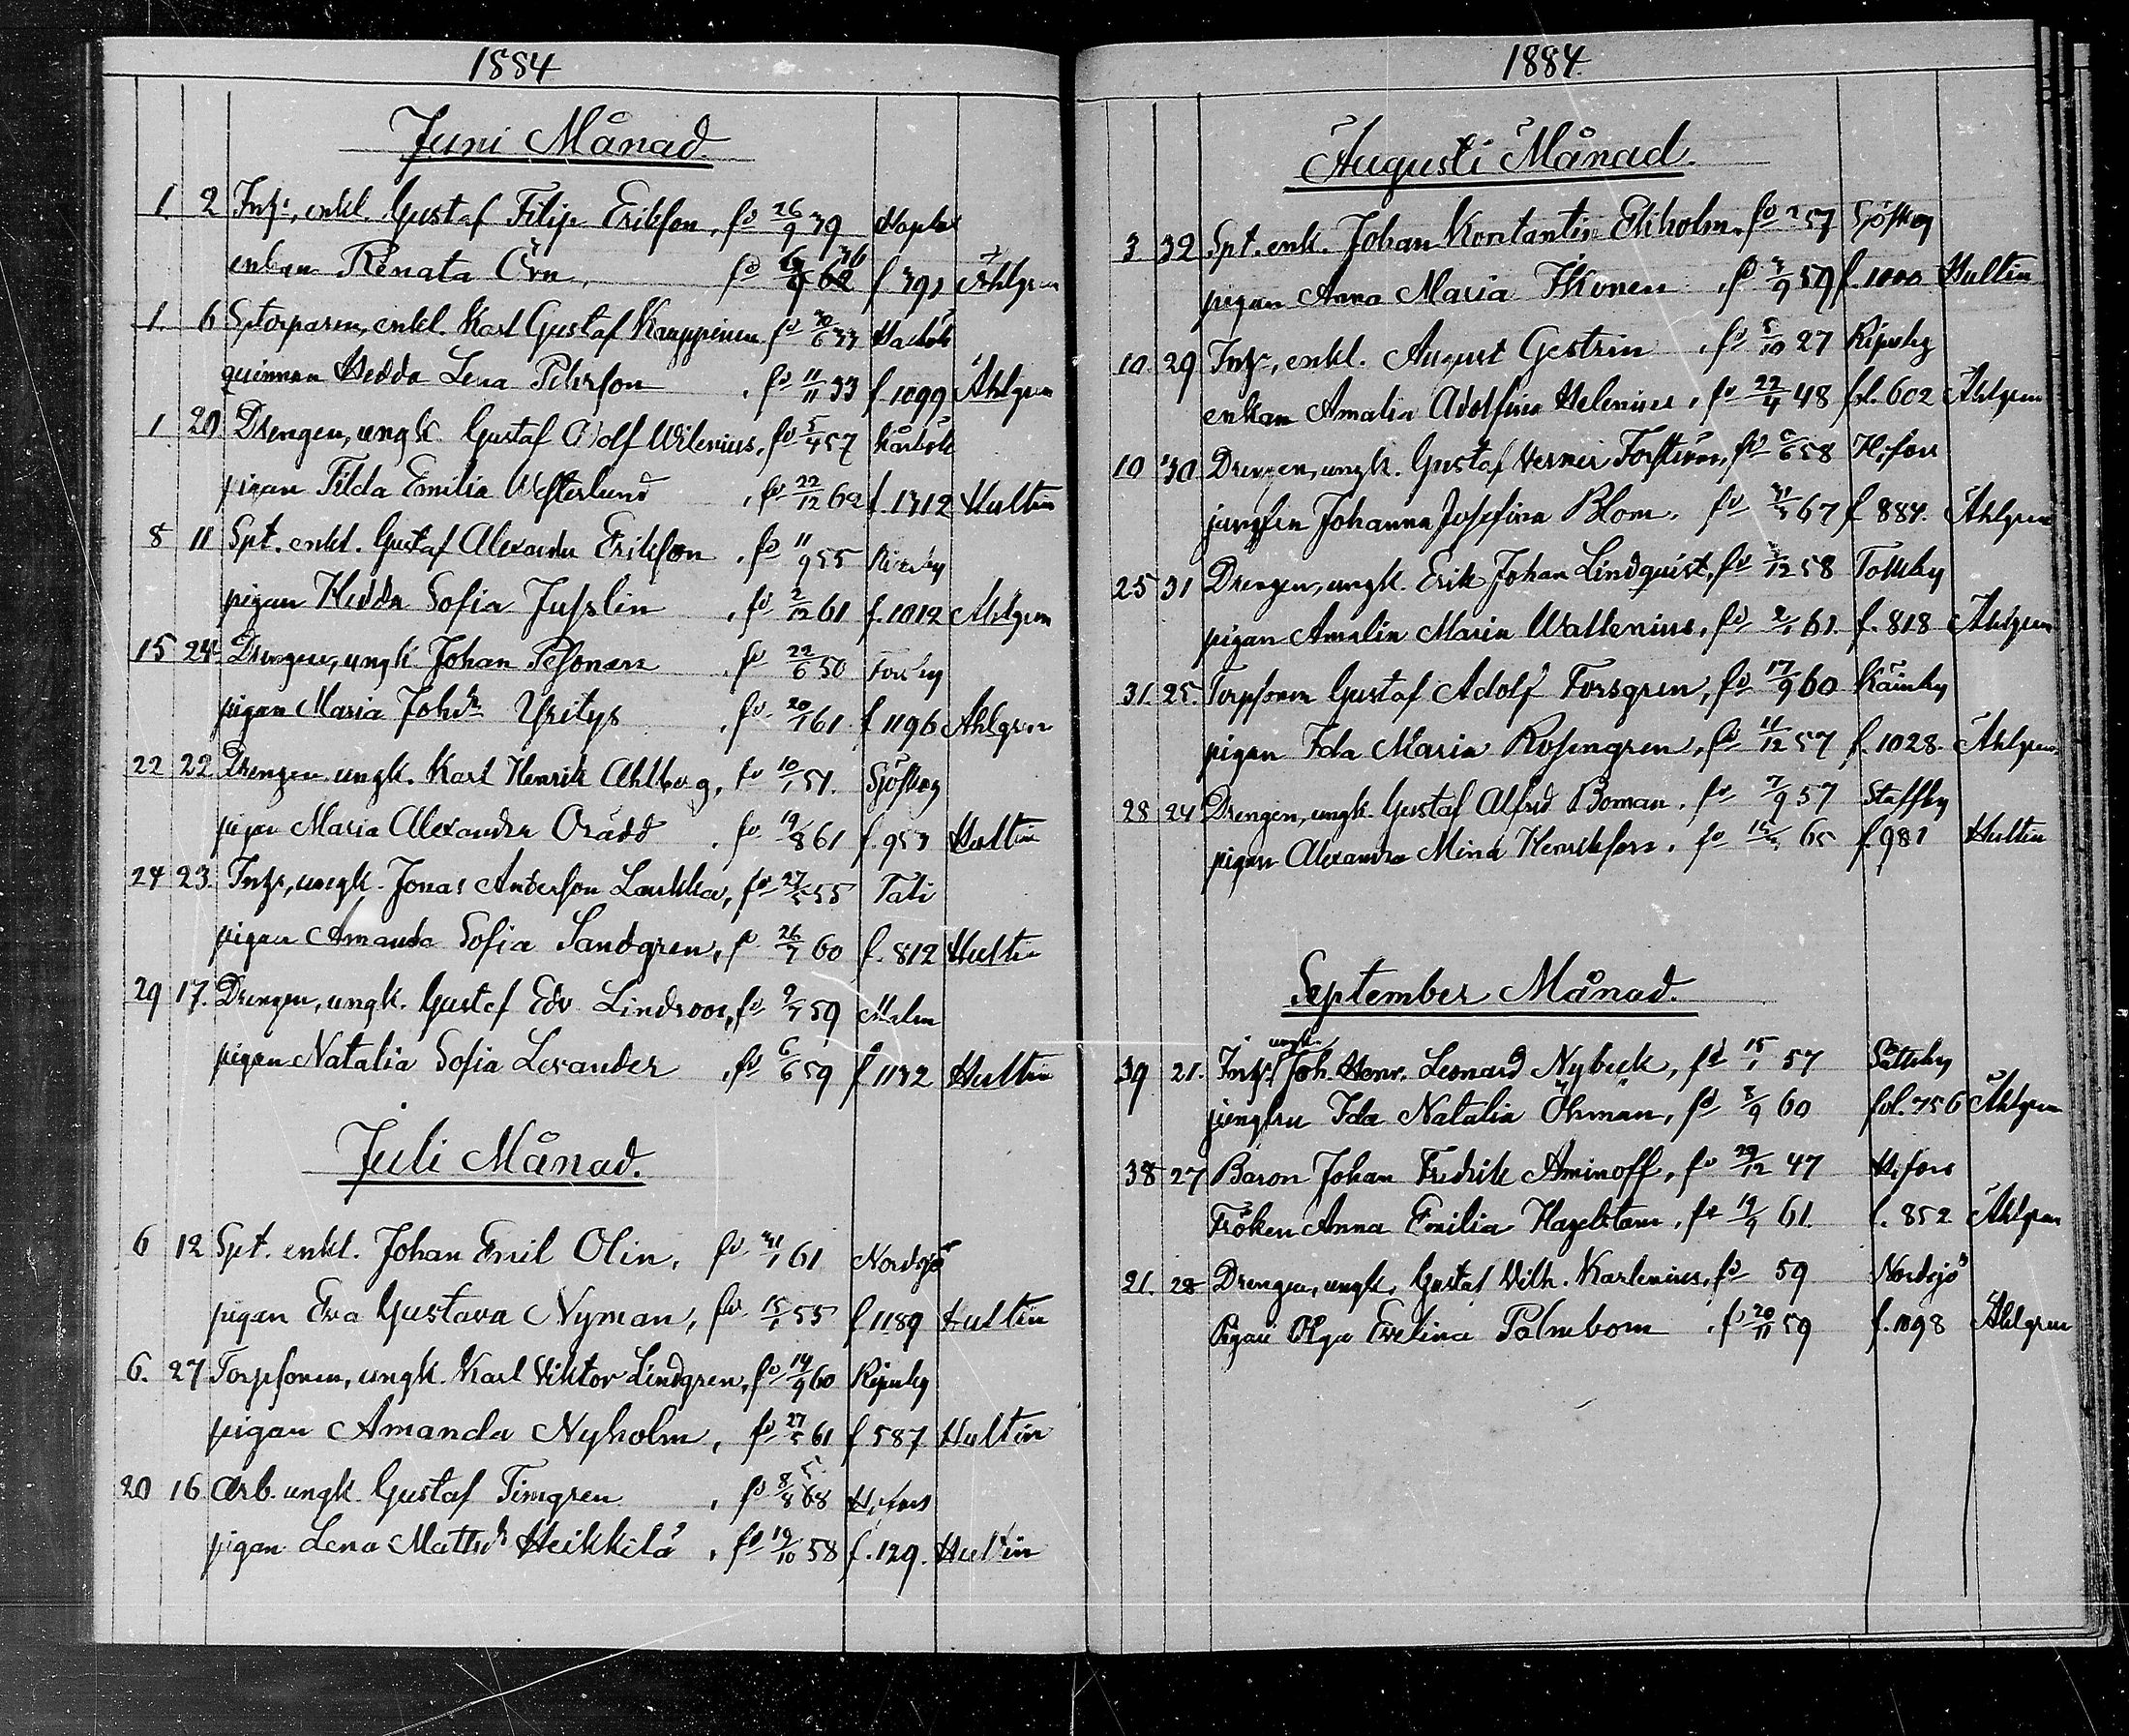 1884
Juni Månad.
1. 2 Inhs, enkl. Gustaf Filip Erikson, fd 26/9 39
enkan Renata Örn, fd 62 36 f 391 Åhlgren
1. 6 Storparen, enkl. Karl Gustaf Kauppinen fd 30/6 33
quinnan Hedda Lena Pehrson, fd 11/11 33 f 1099 Åhlgren
1 20 Drengen, ungk. Gustaf Adolf Wilenius, fd 5/4 57 Kårböle
pigan Filda Emilia Westerlund, fd 22/12 62 f. 1312 Hultin
8 11 Spt. enkl. Gustaf Alexander Erikson, fd 11/9 55
pigan Hedda Sofia Jusslin, fd 2/12 61 f. 1012 Åhlgren
15 24 Drengen, ungk. Johan Pesonen, fd 22/6 50
pigan Maria Johdr Yritys, fd 20/1 61 f 1196 Åhlgren
22 22 Drengen ungk. Karl Henrik Ahlberg, fd 10/1 51. Sjöskog
pigan Maria Alexandra Orädd, fd 19/8 61 f. 953 Hultin
24 23. Inhs, ungk. Jonas Anderson Laukka, fd 27/5 55 Tali
pigan Amanda Sofia Sandgren, fd 26/7 60 f. 812 Hultin
29 17. Drengen, ungk. Gustaf Edv. Lindroos, fd 59 Malm
pigan Natalia Sofia Levander, fd 6/6 59 f 1132 Hultin
Juli Månad.
6 12 Spt. enkl. Johan Emil Olin, fd 31/1 61 Nordsjö
pigan Eva Gustava Nyman, fd 15/1 55 f 1189 Hultin
6. 27 Torpsonen, ungk. Karl Viktor Lindgren, fd 14/9 60 Ripuby
pigan Amanda Nyholm, fd 27/5 61 f 587 Hultin
20 16 Arb. ungk. Gustaf Timgren, fd 8/8 68 5 H:fors
pigan Lena Mattsdr Heikkilä, fd 19/10 58 f. 129. Hultin
1884.
Augusti Månad.
3 32 Spt. enk. Johan Konstantin Ekholm, fd 57 Sjöskog
pigan Anna Maria Ikonen, fd 3/9 59 f. 1000 Hultin
10. 29 Inhs, enkl. August Gestrin, fd 5/10 27 Ripuby
enkan Amalia Adolfina Helenius, fd 22/4 48 fol. 602 Åhlgren
10 30. Drengen, ungk. Gustaf Verner Forsström, fd 6/6 58 H:fors
jungfrun Johanna Josefina Blom, fd 67 f 884. Åhlgren
25 31 Drengen, ungk. Erik Johan Lindquist, fd 12 58
pigan Amalia Maria Wallenius, fd 2/1 61. f. 818 Åhlgren
31. 25. Torpsonen Gustaf Adolf Forsgren, fd 17/9 60
pigan Ida Maria Rosengren, fd 11/12 57 f. 1028. Åhlgren
28 24 Drengen, ungk. Gustaf Alfred Boman, fd 7/9 57 Staffby
pigan Alexandra Mina Henrikson, fd 65 f. 981 Hultin
September Månad.
39 21. Inhs. ungk. Joh. Henr. Leonard Nybeck, fd 15/1 57
jungfru Ida Natalia Öhman, fd 8/9 60 fol. 756 Åhlgren
38 27 Baron Johan Fredrik Aminoff, fd 29/12 47 H:fors
Fröken Anna Emilia Hagelstam, fd 19/9 61. f. 852 Åhlgren
21. 28 Drengen, ungk. Gustaf Vilh. Karlenius, fd 59 Nordsjö
Pigan Olga Evelina Palmbom, fd 20/11 59 f. 1098 Åhlgren